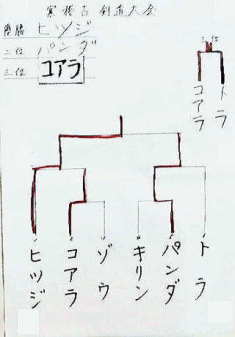 寒稽古剣道大会
優勝 ヒツジ
二位 パンダ
三位 コアラ
コアラ
トラ
ヒツジ
コアラ
ゾウ
キリン
パンダ
トラ